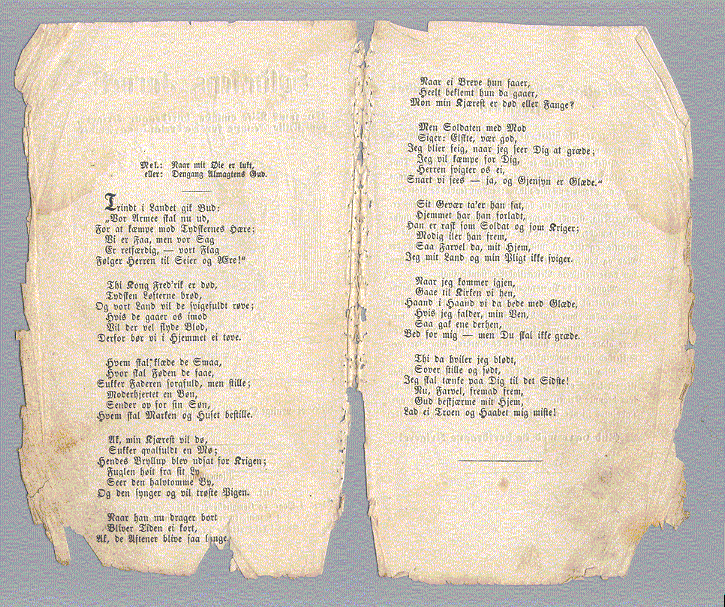 Mel.: Naar mit Øie er lukt,
eller: Dengang Almagtens Gud.
Trindt i Landet gik Bud:
„Vor Armee skal nu ud,
For at kæmpe mod Tydskernes Hære;
Vi er Faa, men vor Sag
Er retfærdig, — vort Flag
Følger Herren til Seier og Ære!“
Thi Kong Fred'rik er død,
Tydsken Løfterne brød,
Og vort Land vil de svigefuldt røve;
Hvis de gaaer os imod
Vil der vel flyde Blod,
Derfor bør vi i Hjemmet ei tøve.
Hvem skal klæde de Smaa,
Hvor skal Føden de faae,
Sukker Faderen sorgfuld, men stille;
Moderhjertet en Bøn,
Sender op for sin Søn,
Hvem skal Marken og Huset bestille.
Ak, min Kjærest vil dø,
Sukker qvalfuldt en Mø;
Hendes Bryllup blev udsat for Krigen;
Fuglen høit fra sit Ly
Seer den halvtomme By,
Og den synger og vil trøste Pigen.
Naar han nu drager bort
Bliver Tiden ei kort,
Ak, de Aftener blive saa lange.
Naar ei Breve hun faaer,
Heelt beklemt hun da gaaer,
Mon min Kjærest er død eller Fange?
Men Soldaten med Mod
Siger: Elskte, vær god,
Jeg blier feig, naar jeg seer Dig at græde;
Jeg vil kæmpe for Dig,
Herren svigter os ei,
Snart vi sees — ja, og Gjensyn er Glæde.“
Sit Gevær ta'er han fat,
Hjemmet har han forladt,
Han er rask som Soldat og som Kriger;
Modig iler han frem,
Saa Farvel da, mit Hjem,
Jeg mit Land og min Pligt ikke sviger.
Naar jeg kommer igjen,
Gaae til Kirken vi hen,
Haand i Haand vi da bede med Glæde.
Hvis jeg falder, min Ven,
Saa gak ene derhen,
Bed for mig — men Du skal ikke græde.
Thi da hviler jeg blødt,
Sover stille og sødt,
Jeg skal tænke paa Dig til det Sidste!
Nu, Farvel, fremad frem,
Gud beskjærme mit Hjem,
Lad ei Troen og Haabet mig miste!